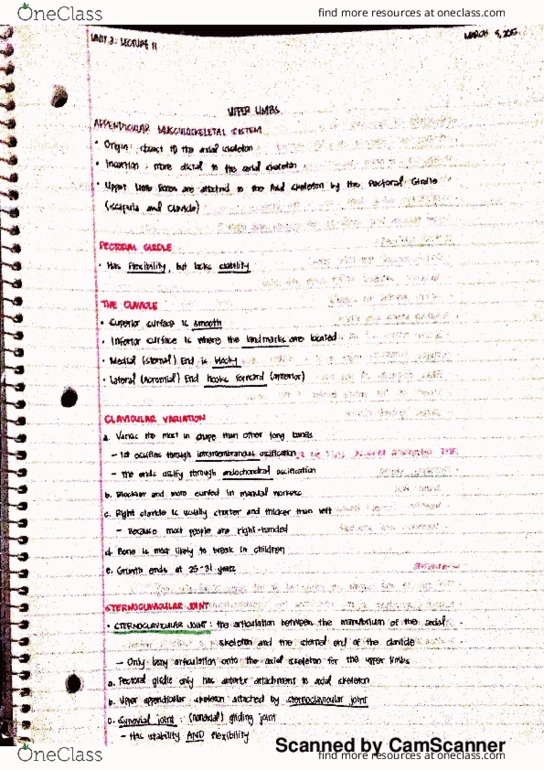 OneClass
find more resources at oneclass.com
UNIT 3: LECTURE 11
MARCH 5, 2015
UPPER LIMBS
APPENDICULAR MUSCULOSKELETAL SYSTEM
• Origin: closest to the axial skeleton
• Insertion: more distal to the axial skeleton
• Upper limb bones are attached to the axial skeleton by the Pectoral Girdle
(scapula and clavicle)
PECTORAL GIRDLE
• Has flexibility, but lacks stability
THE CLAVICLE
• Superior surface is smooth
• Inferior surface is where the landmarks are located
• Medial (sternal) End is blocky
• Lateral (acromial) End hooks forward (anterior)
CLAVICULAR VARIATION
a. Varies the most in shape than other long bones
- 1st ossifies through intramembranous ossification
- The ends ossify through endochondral ossification
b. Blockier and more curved in manual workers
c. Right clavicle is usually shorter and thicker than left
- Because most people are right-handed
d. Bone is most likely to break in children
e. Growth ends at 25-31 years
STERNOCLAVICULAR JOINT
• STERNOCLAVICULAR JOINT: the articulation between the manubrium of the axial
skeleton and the sternal end of the clavicle
- Only bony articulation onto the axial skeleton for the upper limbs
a. Pectoral girdle only has anterior attachment to axial skeleton
b. Upper appendicular skeleton attached by sternoclavicular joint
c. Synovial joint: gliding joint
- Has stability AND flexibility
Scanned by CamScanner
OneClass
find more resources at oneclass.com